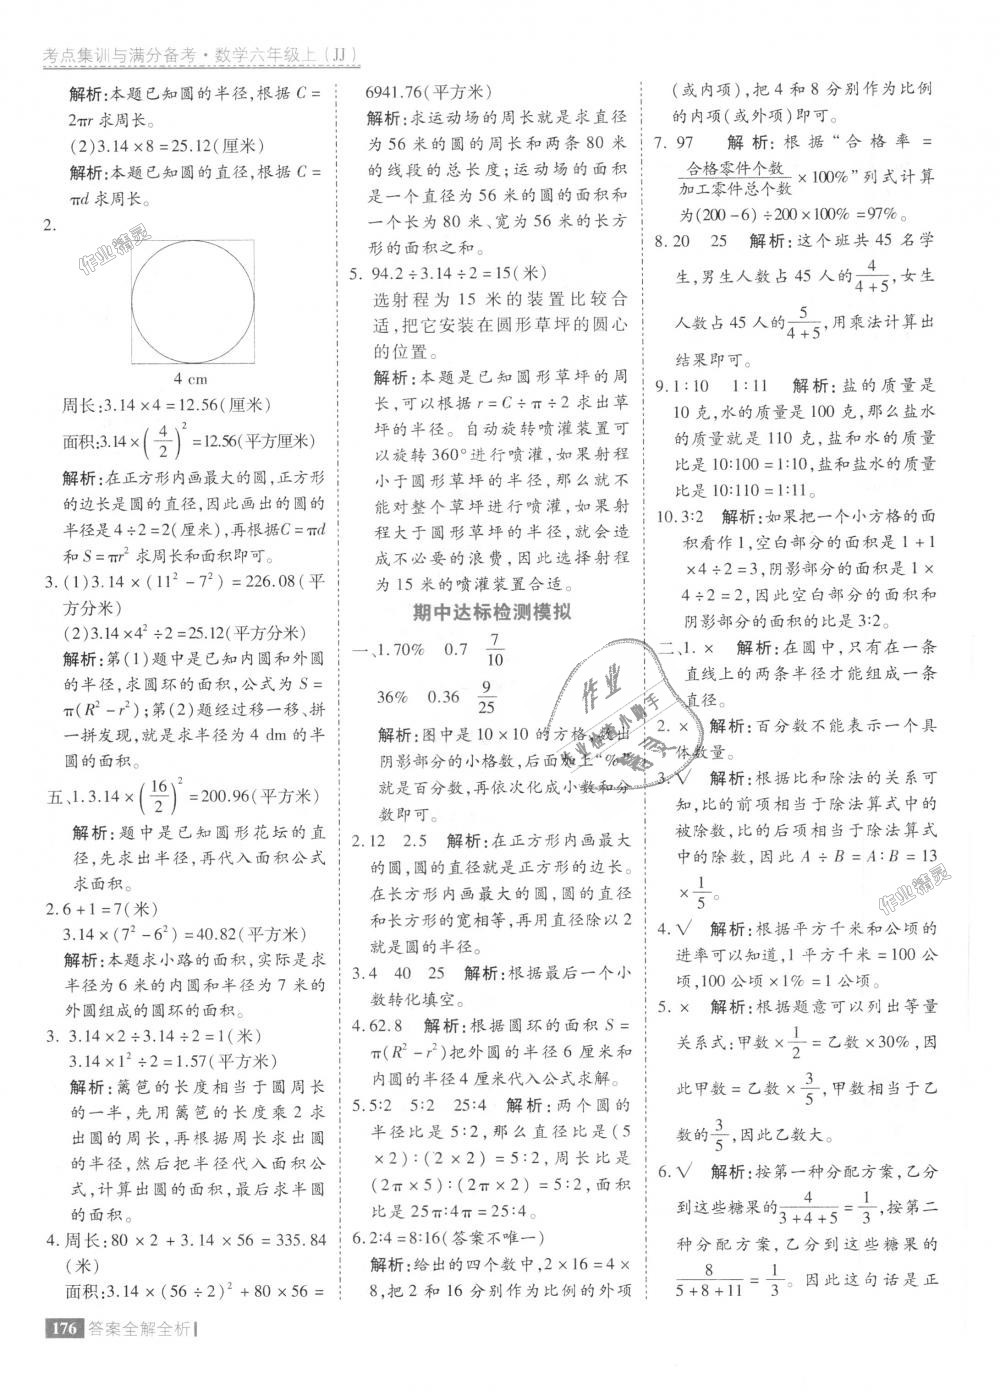 考点集训与满分备考·数学六年级上(JJ)
解析:本题已知圆的半径,根据 C=
2πr 求周长。
(2)3.14×8=25.12(厘米)
解析:本题已知圆的直径,根据 C=
πd 求周长。
2.
4 cm
周长:3.14×4=12.56(厘米)
面积:3.14×(4/2)²=12.56(平方厘米)
解析:在正方形内画最大的圆,正方形
的边长是圆的直径,因此画出的圆的
半径是4÷2=2(厘米),再根据C=πd
和 S=πr² 求周长和面积即可。
3.(1)3.14×(11²-7²)=226.08(平
方分米)
(2)3.14×4²÷2=25.12(平方分米)
解析:第(1)题中是已知内圆和外圆
的半径,求圆环的面积,公式为 S=
π(R²-r²);第(2)题经过移一移、拼
一拼发现,就是求半径为 4 dm 的半
圆的面积。
五、1.3.14×(16/2)²=200.96(平方米)
解析:题中是已知圆形花坛的直
径,先求出半径,再代入面积公式
求面积。
2.6+1=7(米)
3.14×(7²-6²)=40.82(平方米)
解析:本题求小路的面积,实际是求
半径为 6 米的内圆和半径为 7 米的
外圆组成的圆环的面积。
3. 3.14×2÷3.14÷2=1(米)
3.14×1²÷2=1.57(平方米)
解析:篱笆的长度相当于圆周长
的一半,先用篱笆的长度乘 2 求
出圆的周长,再根据周长求出圆
的半径,然后把半径代入面积公
式,计算出圆的面积,最后求半圆
的面积。
4.周长:80×2+3.14×56=335.84
(米)
面积:3.14×(56÷2)²+80×56=
6941.76(平方米)
解析:求运动场的周长就是求直径
为 56 米的圆的周长和两条 80 米
的线段的总长度;运动场的面积
是一个直径为 56 米的圆的面积和
一个长为 80 米、宽为 56 米的长方
形的面积之和。
5. 94.2÷3.14÷2=15(米)
选射程为 15 米的装置比较合
适,把它安装在圆形草坪的圆心
的位置。
解析:本题是已知圆形草坪的周
长,可以根据 r=C÷π÷2 求出草
坪的半径。自动旋转喷灌装置可
以旋转360°进行喷灌,如果射程
小于圆形草坪的半径,那么就不
能对整个草坪进行喷灌,如果射
程大于圆形草坪的半径,就会造
成不必要的浪费,因此选择射程
为 15 米的喷灌装置合适。
期中达标检测模拟
一、1.70% 0.7 7/10
36% 0.36 9/25
解析:图中是 10×10 的方格,数出
阴影部分的小格数,后面加上“%”
就是百分数,再依次化成小数和分
数即可。
2.12 2.5 解析:在正方形内画最大
的圆,圆的直径就是正方形的边长。
在长方形内画最大的圆,圆的直径
和长方形的宽相等,再用直径除以2
就是圆的半径。
3.4 40 25 解析:根据最后一个小
数转化填空。
4.62.8 解析:根据圆环的面积 S=
π(R²-r²)把外圆的半径 6 厘米和
内圆的半径4 厘米代入公式求解。
5.5∶2 5∶2 25∶4 解析:两个圆的
半径比是 5∶2,那么直径比是(5
×2)∶(2×2)=5∶2,周长比是
(2π×5)∶(2π×2)=5∶2,面积
比是 25π∶4π=25∶4。
6.2∶4=8∶16(答案不唯一)
解析:给出的四个数中,2×16=4×
8,把 2 和 16 分别作为比例的外项
(或内项),把 4 和 8 分别作为比例
的内项(或外项)即可。
7. 97 解析:根据“合格率=
合格零件个数/加工零件总个数×100%”列式计算
为(200-6)÷200×100%=97%。
8.20 25 解析:这个班共 45 名学
生,男生人数占 45 人的4/(4+5),女生
人数占 45 人的5/(4+5),用乘法计算出
结果即可。
9.1∶10 1∶11 解析:盐的质量是
10 克,水的质量是 100 克,那么盐水
的质量就是 110 克,盐和水的质量
比是 10∶100=1∶10,盐和盐水的质量
比是 10∶110=1∶11。
10.3∶2 解析:如果把一个小方格的面
积看作1,空白部分的面积是 1+1
×4÷2=3,阴影部分的面积是 1×
4÷2=2,因此空白部分的面积和
阴影部分的面积的比是3∶2。
二、1. × 解析:在圆中,只有在一条
直线上的两条半径才能组成一条
直径。
2. × 解析:百分数不能表示一个具
体数量。
3.√ 解析:根据比和除法的关系可
知,比的前项相当于除法算式中的
被除数,比的后项相当于除法算式
中的除数,因此 A÷B=A∶B=13
×1/5。
4.√ 解析:根据平方千米和公顷的
进率可以知道,1 平方千米=100 公
顷,100 公顷×1%=1 公顷。
5. × 解析:根据题意可以列出等量
关系式:甲数×1/2=乙数×30%,因
此甲数=乙数×3/5,甲数相当于乙
数的3/5,因此乙数大。
6.√ 解析:按第一种分配方案,乙分
到这些糖果的4/(3+4+5)=1/3,按第二
种分配方案,乙分到这些糖果的
8/(5+8+11)=1/3。因此这句话是正
176 答案全解全析
作业精灵
作业精灵
作业
作业检查小助手
精灵